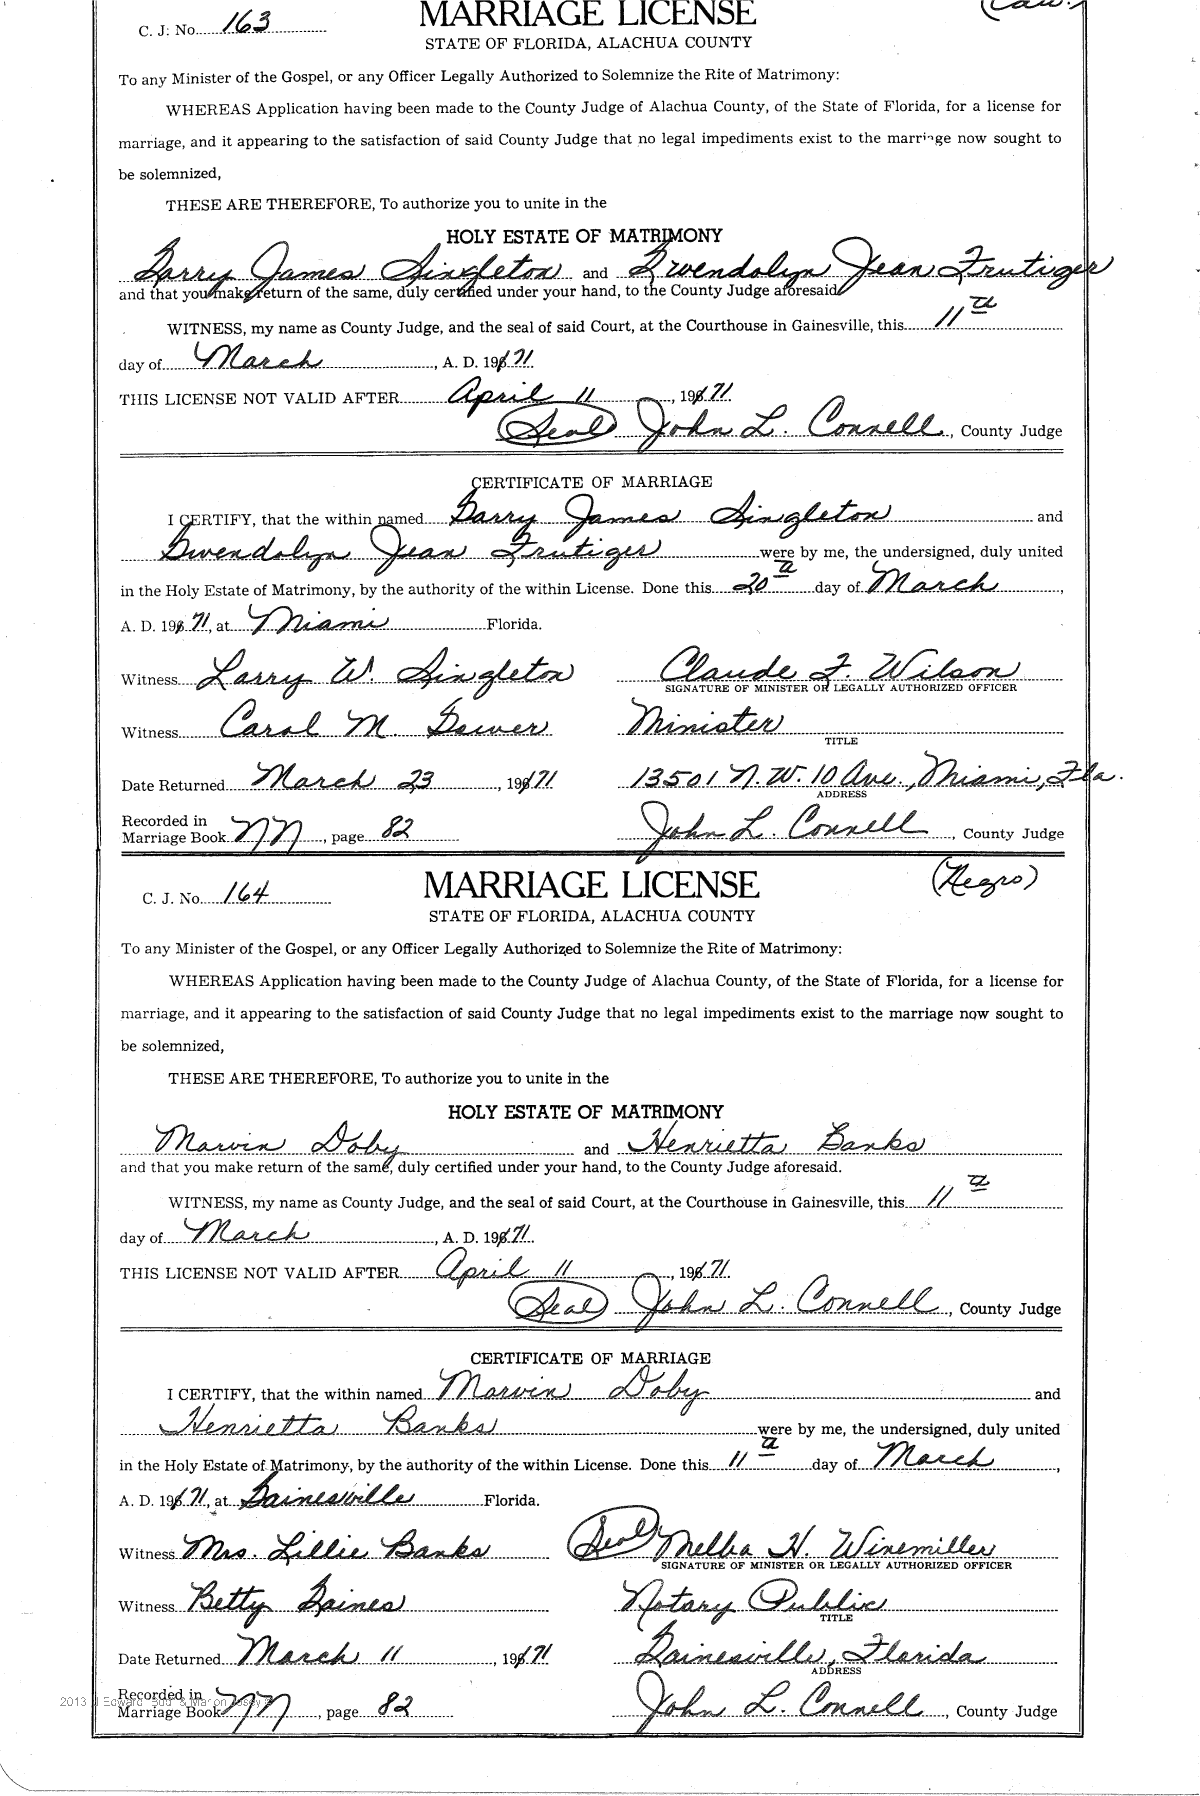 C. J. No. 163 MARRIAGE LICENSE
STATE OF FLORIDA, ALACHUA COUNTY
To any Minister of the Gospel, or any Officer Legally Authorized to Solemnize the Rite of Matrimony:
WHEREAS Application having been made to the County Judge of Alachua County, of the State of Florida, for a license for
marriage, and it appearing to the satisfaction of said County Judge that no legal impediments exist to the marriage now sought to
be solemnized,
THESE ARE THEREFORE, To authorize you to unite in the
HOLY ESTATE OF MATRIMONY
Garry James Singleton and Gwendolyn Jean Frutiger
and that you make return of the same, duly certified under your hand, to the County Judge aforesaid.
WITNESS, my name as County Judge, and the seal of said Court, at the Courthouse in Gainesville, this 11th
day of March, A. D. 1971.
THIS LICENSE NOT VALID AFTER April 11, 1971.
(Seal) John L. Connell, County Judge
CERTIFICATE OF MARRIAGE
I CERTIFY, that the within named Garry James Singleton and
Gwendolyn Jean Frutiger were by me, the undersigned, duly united
in the Holy Estate of Matrimony, by the authority of the within License. Done this 20th day of March,
A. D. 1971, at Miami Florida.
Witness Larry W. Singleton Claude F. Wilson
SIGNATURE OF MINISTER OR LEGALLY AUTHORIZED OFFICER
Witness Carol M. Gewer Minister
TITLE
Date Returned March 23, 1971 13501 N.W. 10 Ave., Miami, Fla.
ADDRESS
Recorded in
Marriage Book NN, page 82 John L. Connell, County Judge
C. J. No. 164 MARRIAGE LICENSE (Negro)
STATE OF FLORIDA, ALACHUA COUNTY
To any Minister of the Gospel, or any Officer Legally Authorized to Solemnize the Rite of Matrimony:
WHEREAS Application having been made to the County Judge of Alachua County, of the State of Florida, for a license for
marriage, and it appearing to the satisfaction of said County Judge that no legal impediments exist to the marriage now sought to
be solemnized,
THESE ARE THEREFORE, To authorize you to unite in the
HOLY ESTATE OF MATRIMONY
Marvin Doby and Henrietta Banks
and that you make return of the same, duly certified under your hand, to the County Judge aforesaid.
WITNESS, my name as County Judge, and the seal of said Court, at the Courthouse in Gainesville, this 11th
day of March, A. D. 1971.
THIS LICENSE NOT VALID AFTER April 11, 1971.
(Seal) John L. Connell, County Judge
CERTIFICATE OF MARRIAGE
I CERTIFY, that the within named Marvin Doby and
Henrietta Banks were by me, the undersigned, duly united
in the Holy Estate of Matrimony, by the authority of the within License. Done this 11th day of March,
A. D. 1971, at Gainesville Florida.
Witness Mrs. Lillie Banks (Seal) Melba H. Winemiller
SIGNATURE OF MINISTER OR LEGALLY AUTHORIZED OFFICER
Witness Betty Gaines Notary Public
TITLE
Date Returned March 11, 1971 Gainesville, Florida
ADDRESS
Recorded in
Marriage Book NN, page 82 John L. Connell, County Judge